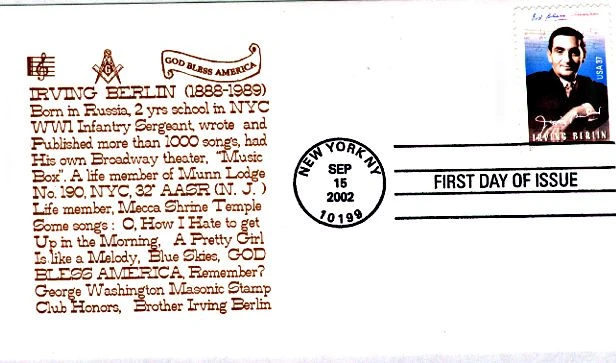 GOD BLESS AMERICA
IRVING BERLIN (1888-1989)
Born in Russia, 2 yrs school in NYC
WW1 Infantry Sergeant, wrote and
Published more than 1000 songs, had
His own Broadway theater, "Music
Box". A life member of Munn Lodge
No. 190, NYC, 32° AASR (N. J. )
Life member, Mecca Shrine Temple
Some songs : O, How I Hate to get
Up in the Morning, A Pretty Girl
Is like a Melody, Blue Skies, GOD
BLESS AMERICA, Remember?
George Washington Masonic Stamp
Club Honors, Brother Irving Berlin
NEW YORK NY
SEP
15
2002
10199
FIRST DAY OF ISSUE
USA 37
IRVING BERLIN